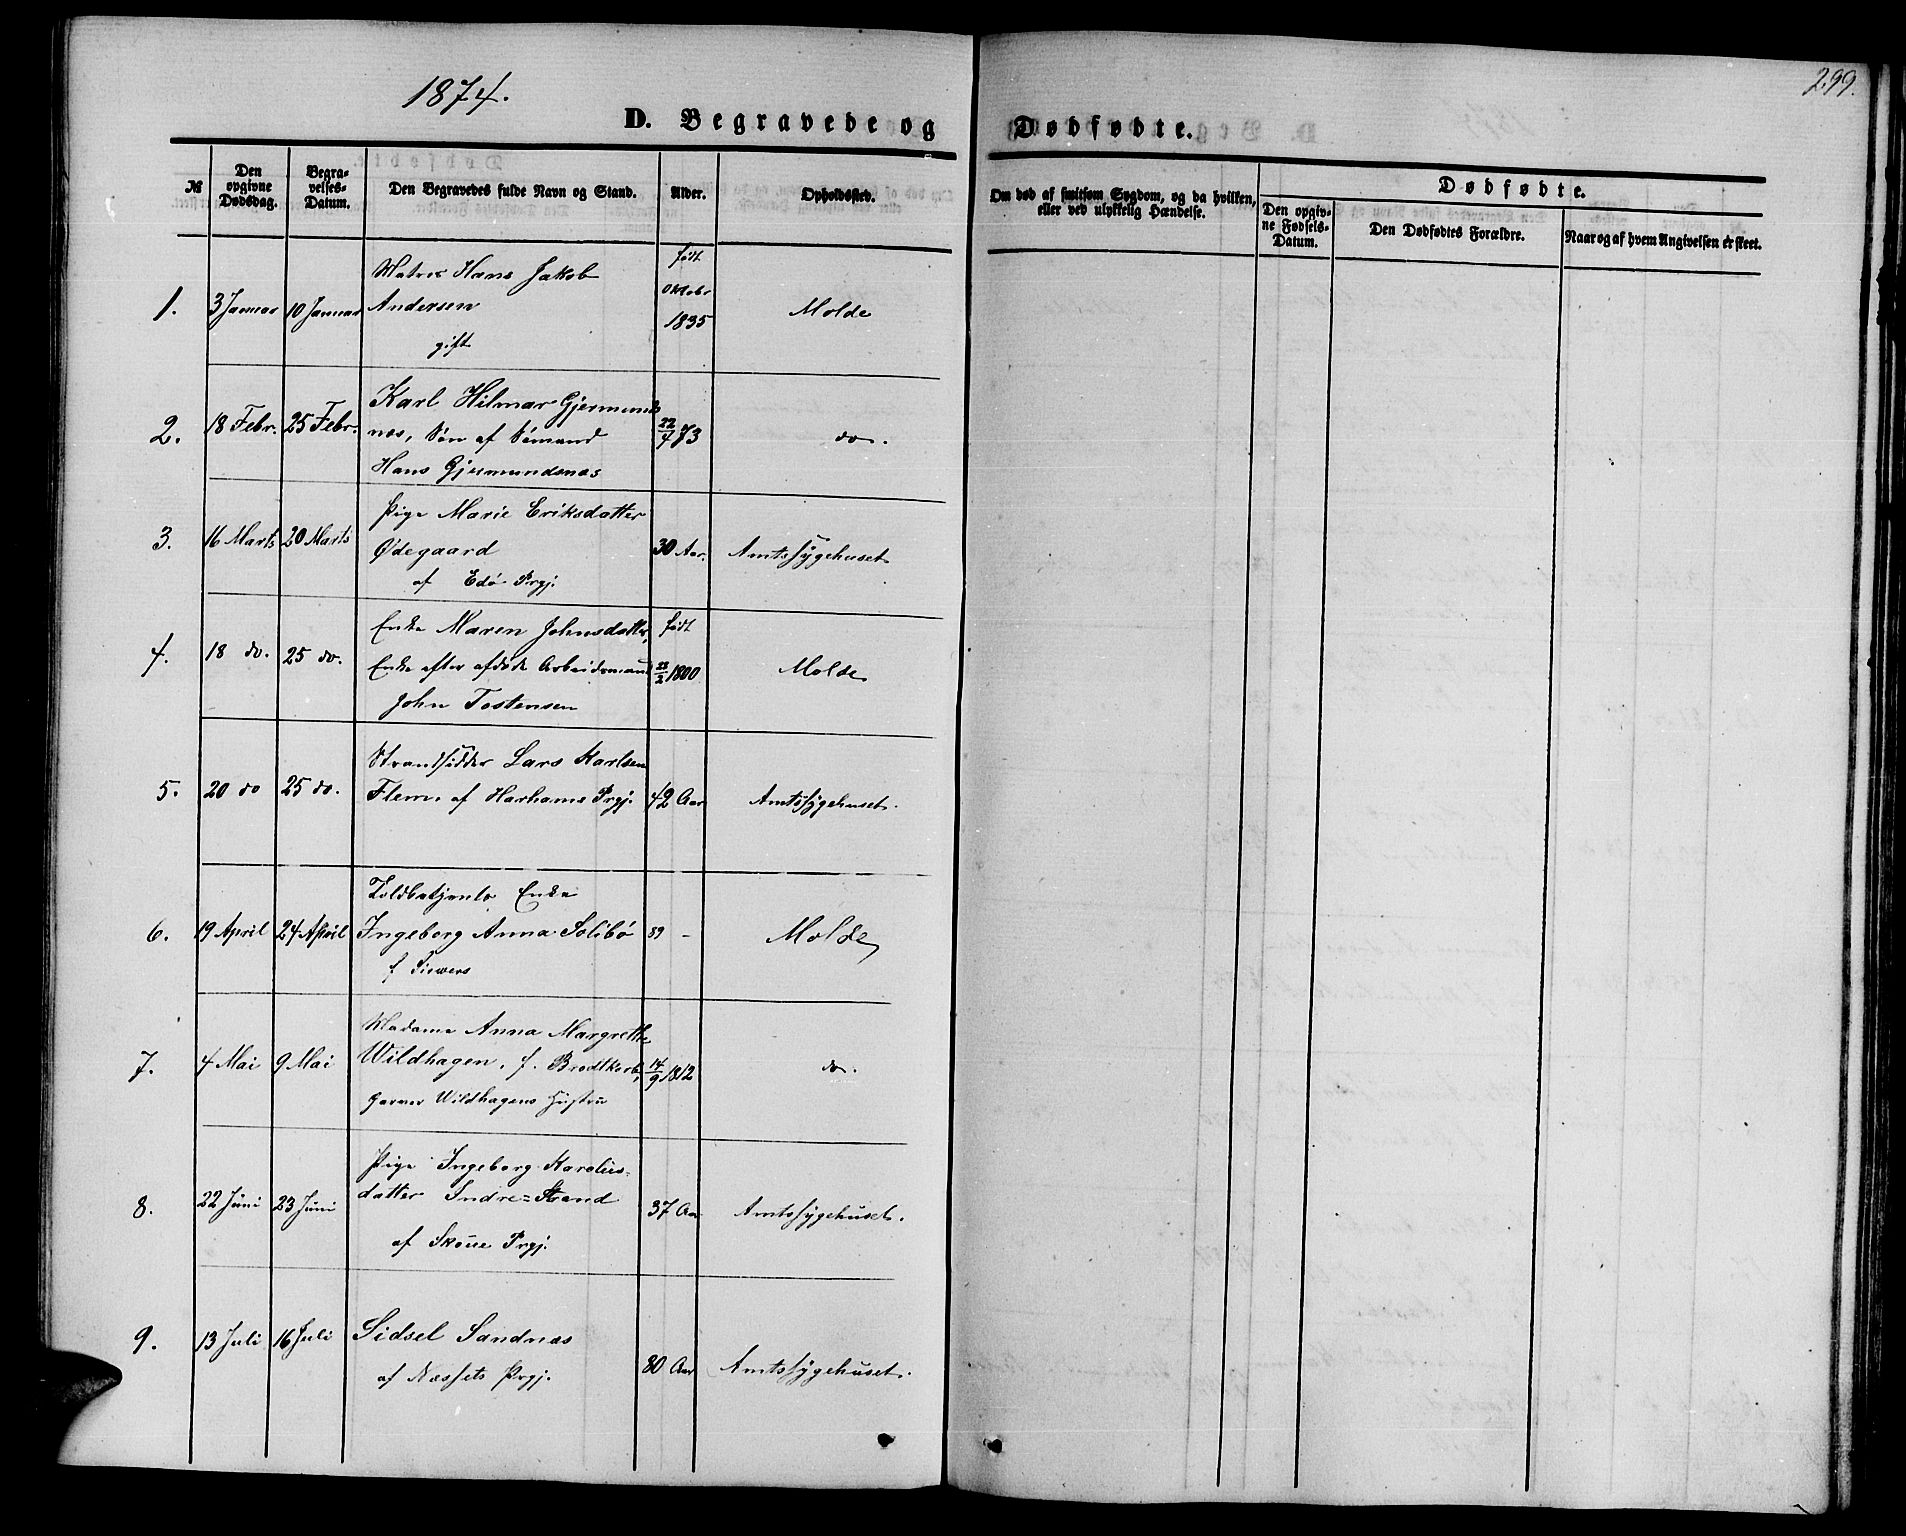 1874.
299.
D. Begravede og Dødfødte.
№ Den opgivne Dødsdag. Begravelses-Datum. Den Begravedes fulde Navn og Stand. Alder. Opholdssted.
Om død af smitsom Sygdom, og da hvilken, eller ved ulykkelig Hændelse.
Dødfødte.
Den opgivne Fødsels-Datum. Den Dødfødtes Forældre. Naar og af hvem Angivelsen er skeet.
1. 3 Januar 10 Januar Matros Hans Jakob født
Andersen Oktobr 1835 Molde
gift
2. 18 Febr. 25 Febr. Karl Hilmar Gjermunds
næs, Søn af Sømand 22/4 73 do.
Hans Gjermundsnæs
3. 16 Marts 20 Marts Pige Marie Eriksdatter
Ødegaard 30 Aar. Amtssygehuset
af Edø Prgj.
4. 18 do. 25 do. Enke Maren Johnsdatter, født
Enke efter afdøde Arbeidsmand 22/2 1800 Molde
John Tostensen
5. 20 do 25 do. Strandsidder Lars Karlsen
Flem, af Harhams Prgj. 42 Aar Amtssygehuset.
6. 19 April 24 April Toldbetjents Enke
Ingeborg Anna Solibø 89 - Molde
f
7. 4 Mai 9 Mai Madame Anna Margrethe
Wildhagen, f. Brodtkorb, 14/9 1812 do.
Garver Wildhagens Hustru
8. 22 Juni 23 Juni Pige Ingeborg Karolus-
datter Indre=Strand 37 Aar Amtssygehuset.
af Skoue Prgj.
9. 13 Juli 16 Juli Sidsel Sandnæs
af Næssets Prgj. 80 Aar Amtssygehuset.